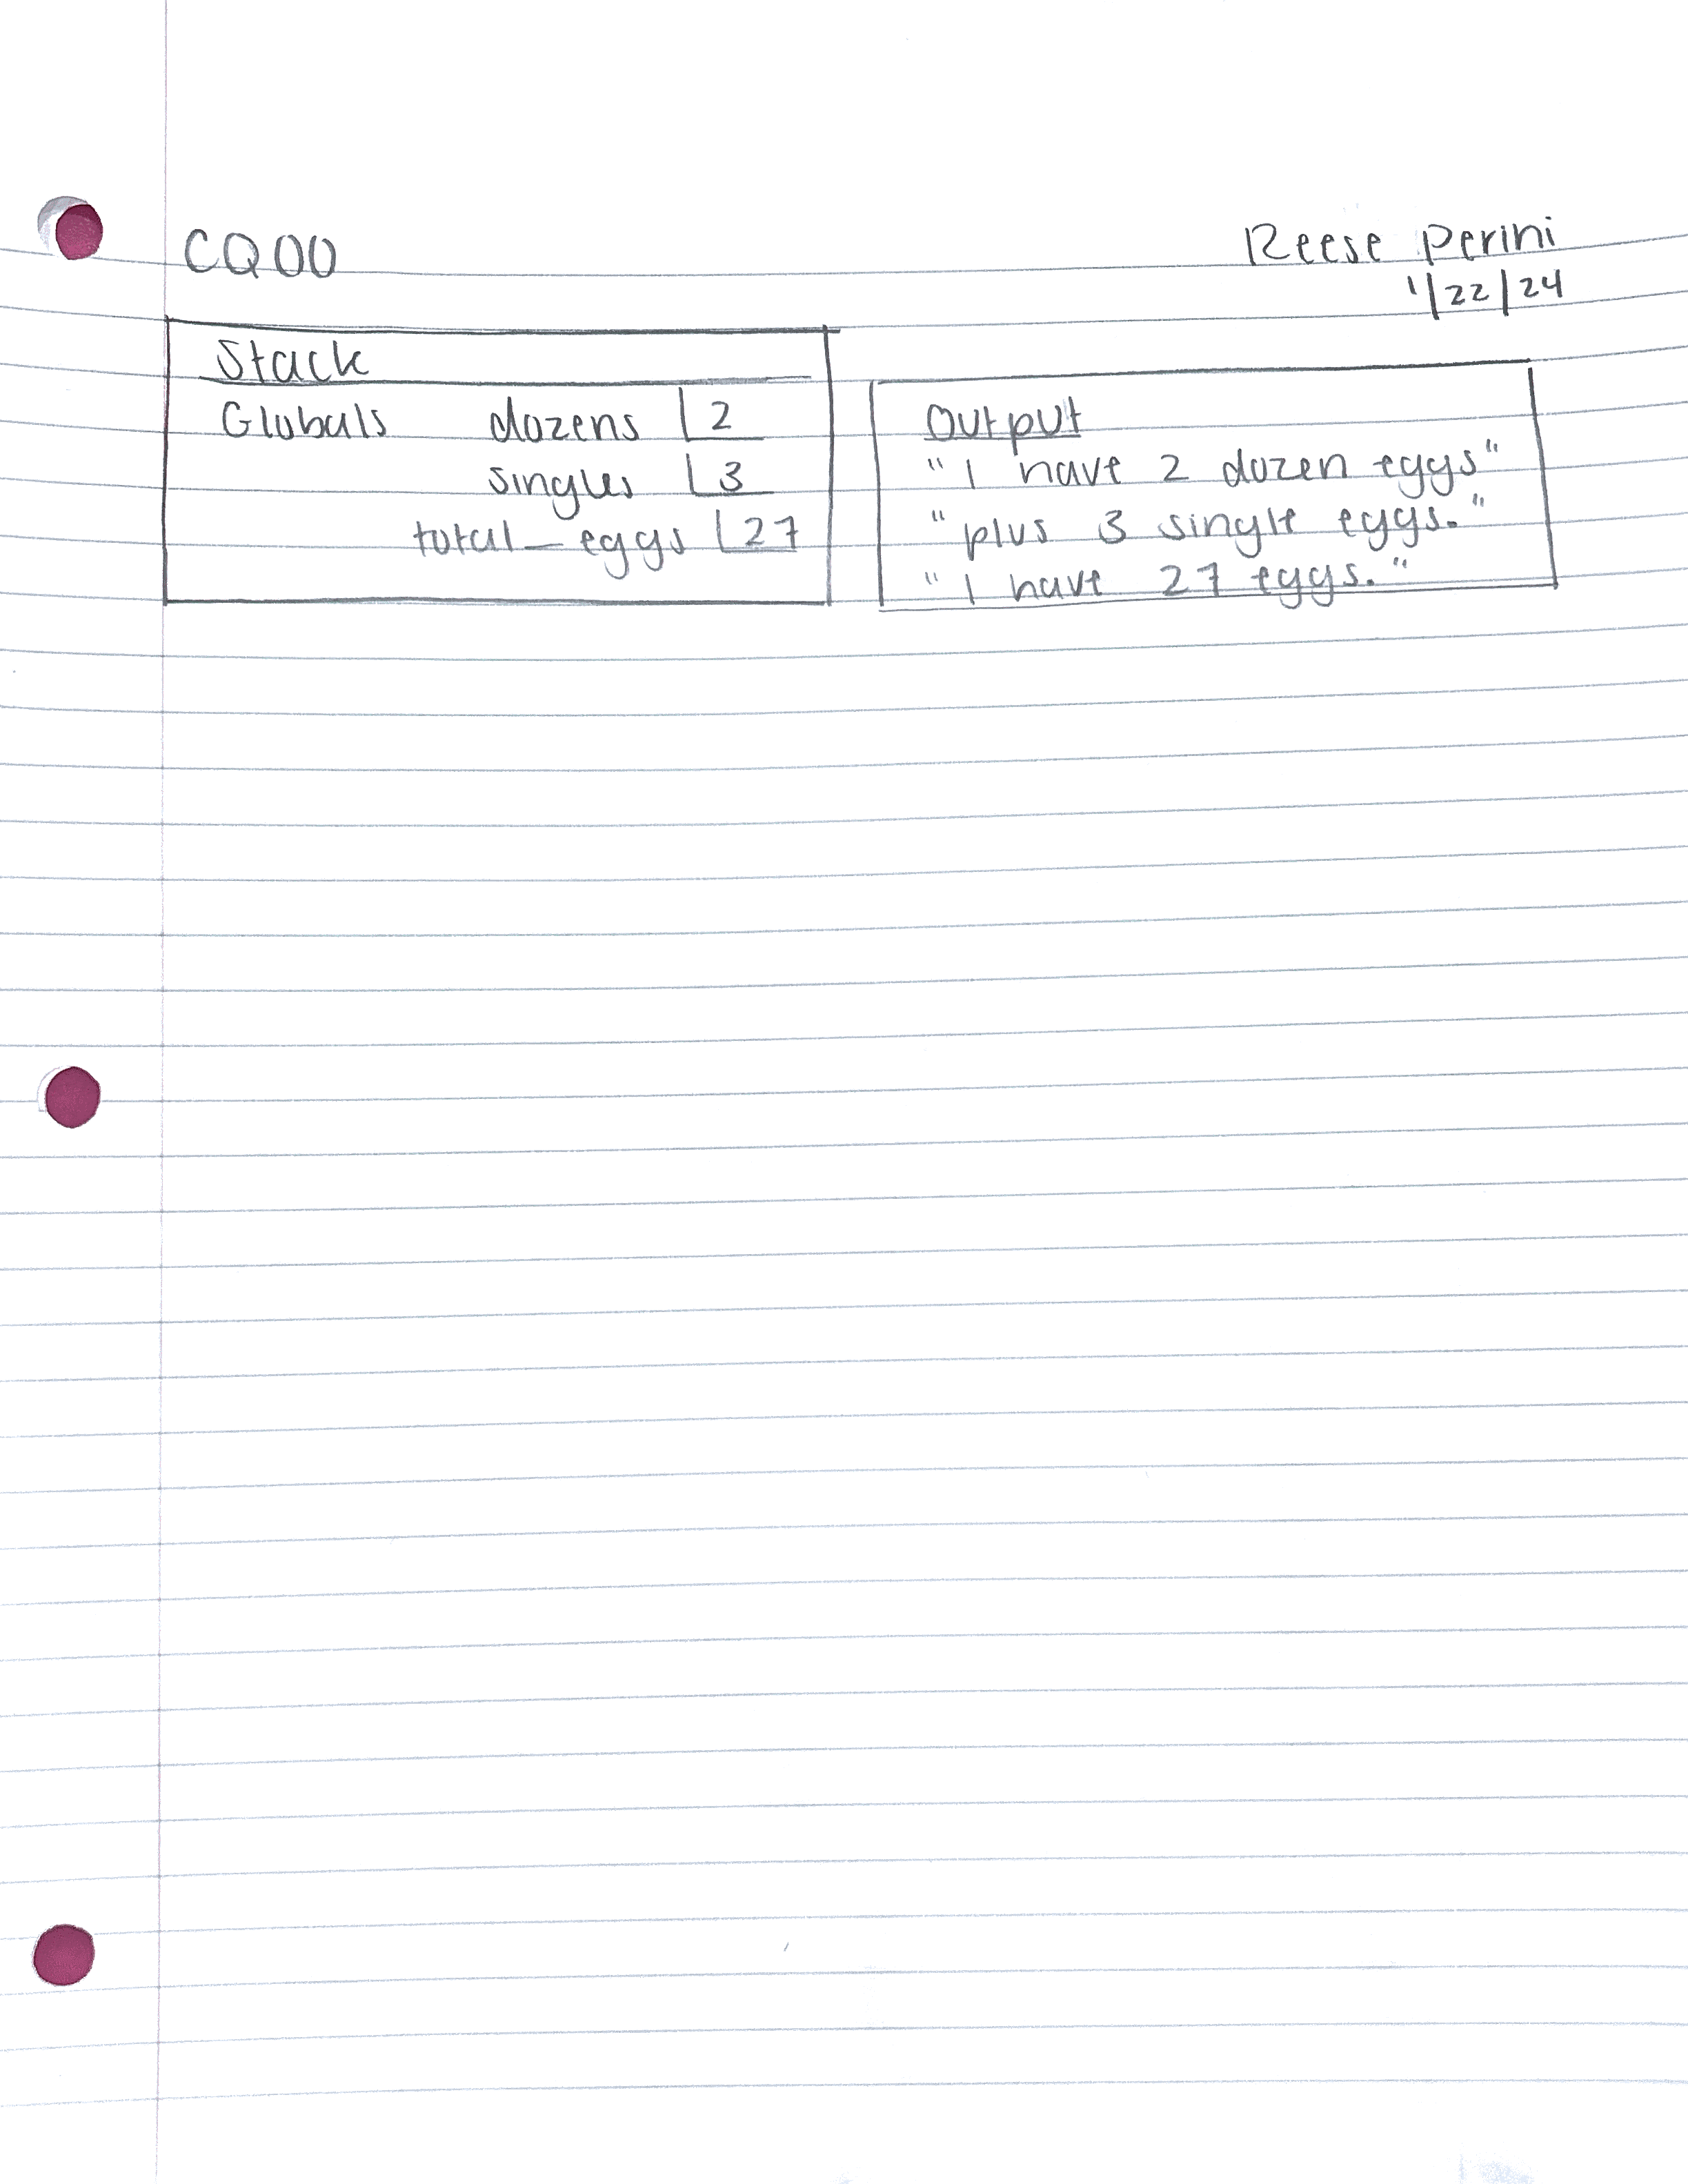 CQ00
Reese Perini
1/22/24
Stack
Globals dozens 2
singles 3
total_eggs 27
Output
"I have 2 dozen eggs"
"plus 3 single eggs."
"I have 27 eggs."